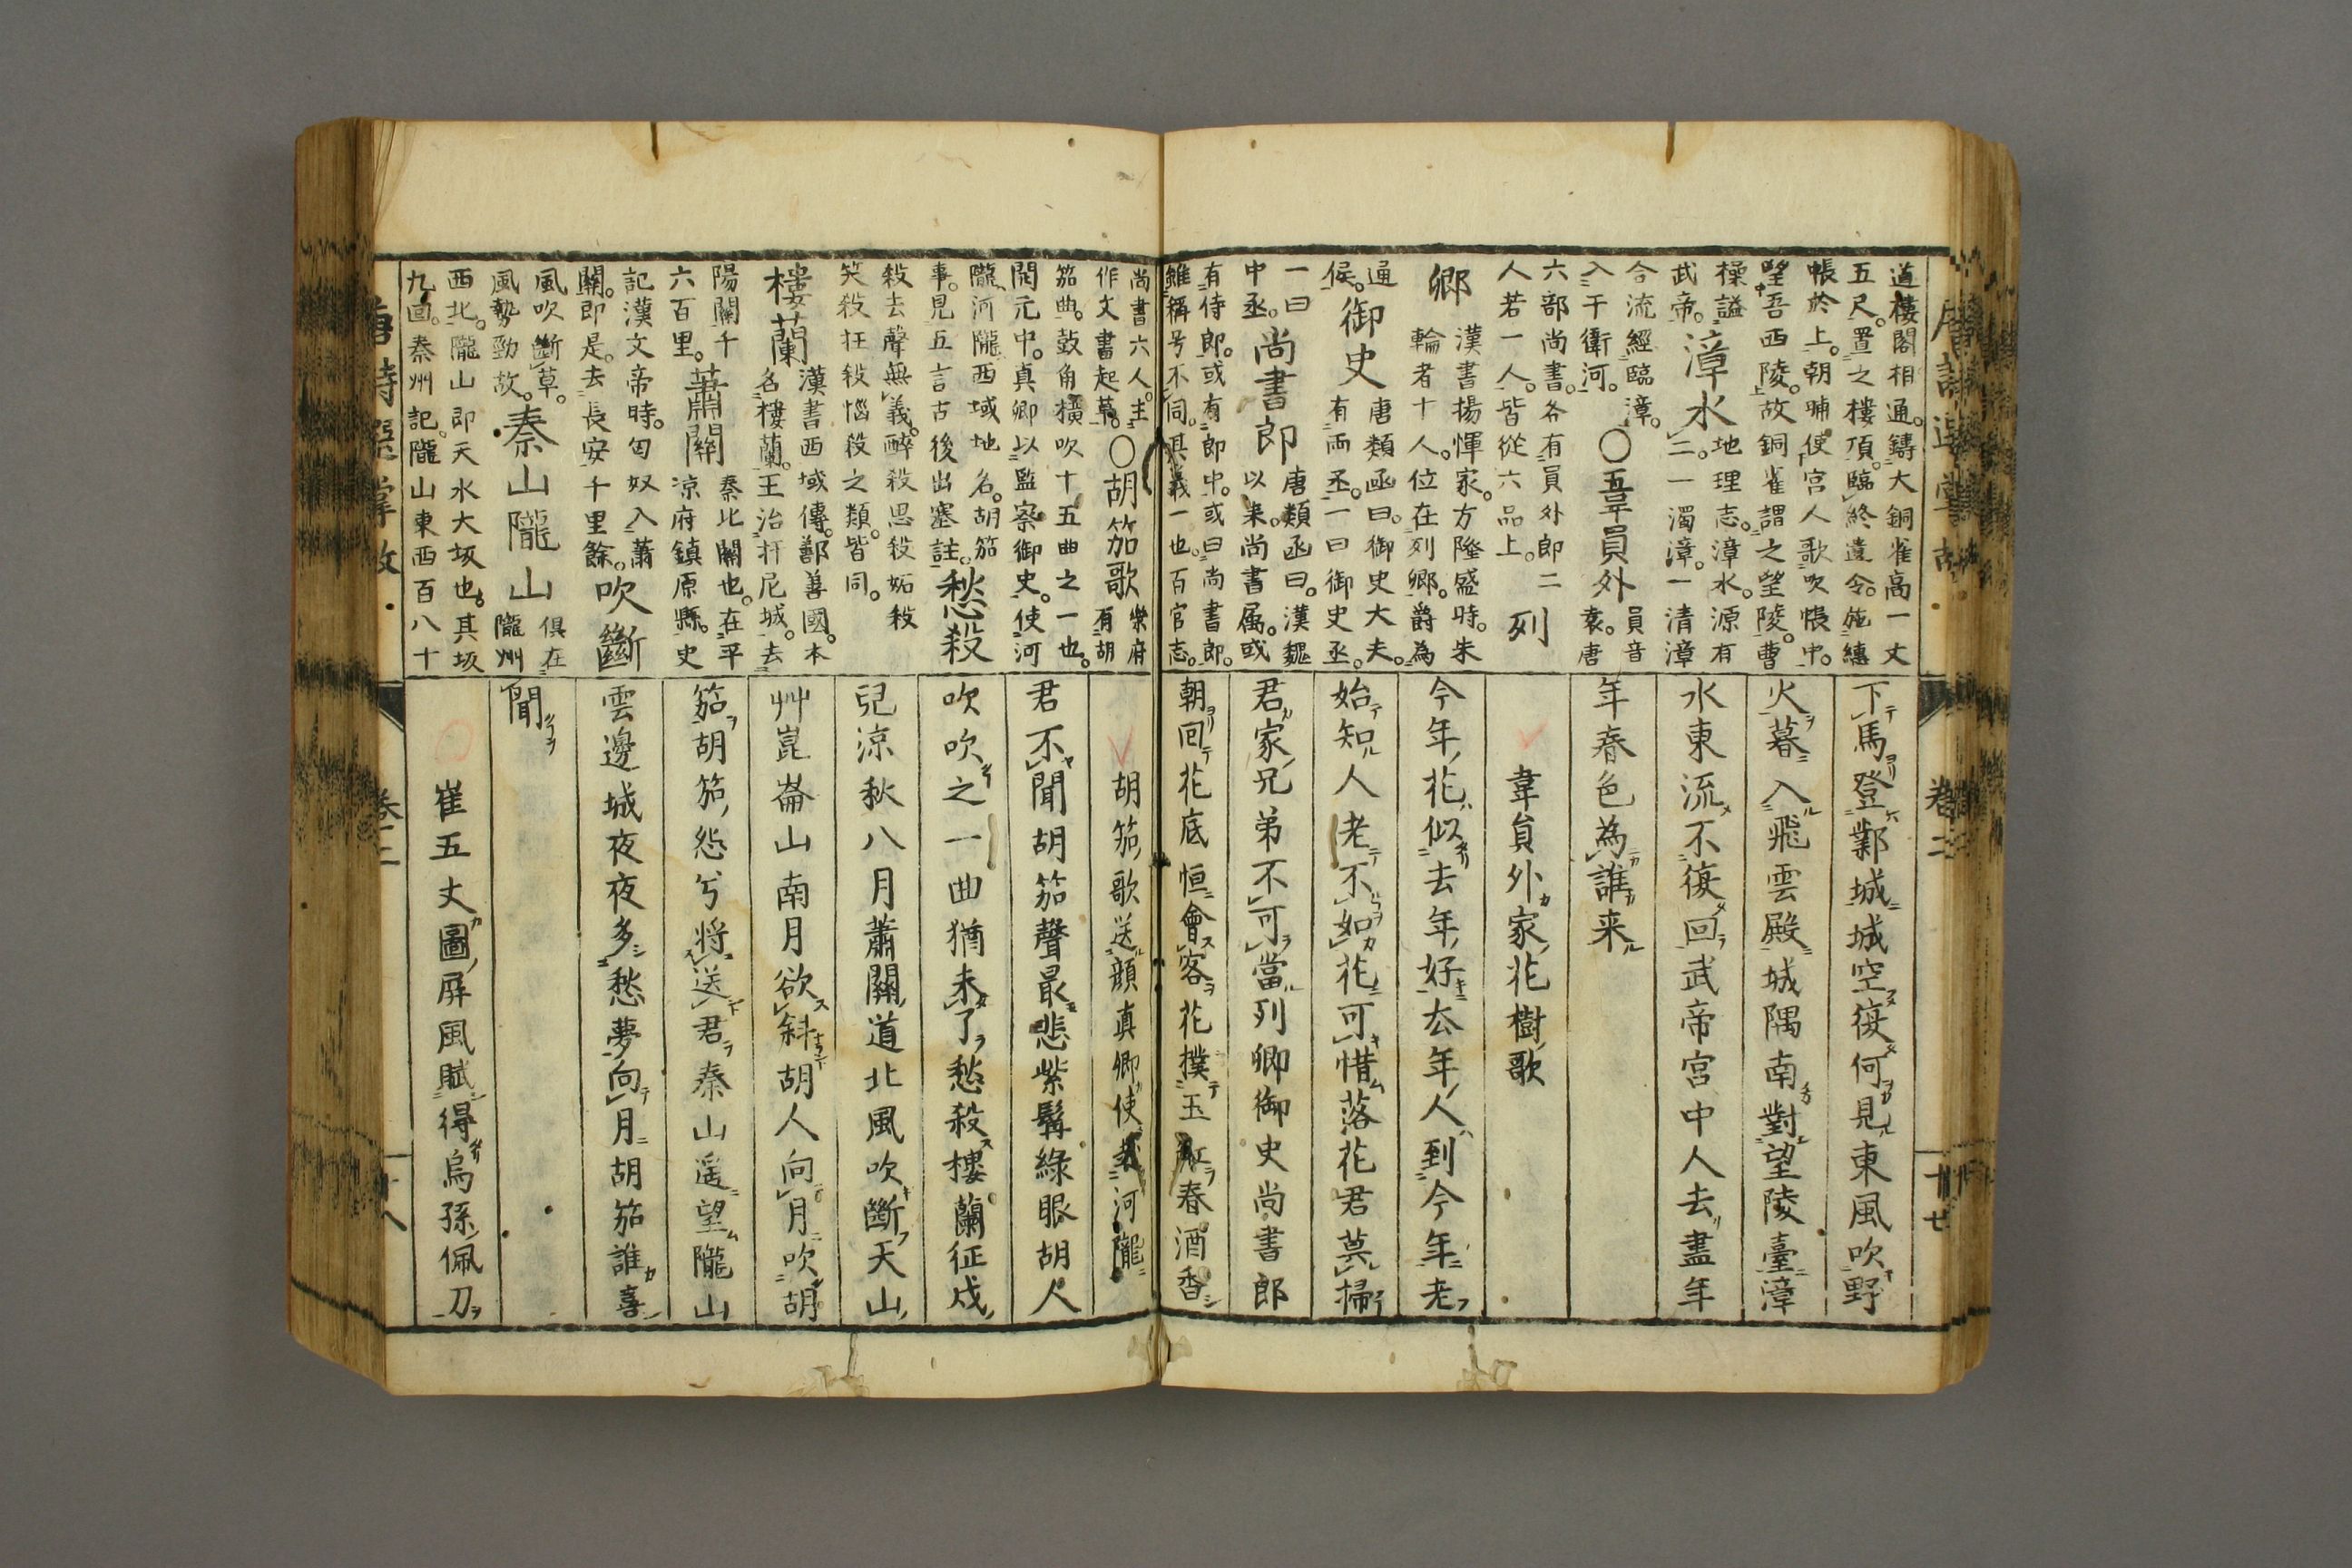 唐詩選掌故
卷二
道樓閣相通。鑄大銅雀高一丈
五尺。置之樓頂。臨終遺令。施繐
帳於上。朝晡使宮人歌吹帳中。
望吾西陵。故銅雀謂之望陵。曹
操謚
武帝。
漳水
地理志。漳水。源有
二。一濁漳。一清漳
合流經臨漳。
入于衛河。
〇韋員外
員音
袁。唐
六部尚書。各有員外郎二
人若一人。皆從六品上。
列
卿
漢書楊惲家。方隆盛時。朱
輪者十人。位在列卿。爵為
通
侯。
御史
唐類函曰。御史大夫。
有兩丞。一曰御史丞。
一曰
中丞。
尚書郎
唐類函曰。漢魏
以来。尚書属。或
有侍郎。或有郎中。或曰尚書郎。
雖稱号不同。其義一也。百官志。
下馬登鄴城城空復何見東風吹野
火暮入飛雲殿城隅南對望陵臺漳
水東流不復回武帝宮中人去盡年
年春色為誰来
韋員外家花樹歌
今年花似去年好去年人到今年老
始知人老不如花可惜落花君莫掃
君家兄弟不可當列卿御史尚書郎
朝回花底恒會客花撲玉缸春酒香
尚書六人。主
作文書起草。
〇胡笳歌
樂府
有胡
笳曲。鼓角橫吹十五曲之一也。
開元中。真卿以監察御史。使河
隴河隴西域地名。胡笳
事。見五言古後出塞註。
愁殺
殺去聲無義。醉殺思殺妬殺
笑殺狂殺惱殺之類。皆同。
樓蘭
漢書西域傳。鄯善國。本
名樓蘭。王治扞尼城。去
陽關千
六百里。
蕭關
秦北關也。在平
凉府鎮原縣。史
記漢文帝時。匈奴入蕭
關。即是。去長安千里餘。
吹斷
風吹斷草。
風勢勁故。
秦山隴山
俱在
隴州
西北。隴山即天水大坂也。其坂
九回。秦州記。隴山東西百八十
胡笳歌送顔真卿使赴河隴
君不聞胡笳聲最悲紫髯綠眼胡人
吹吹之一曲猶未了愁殺樓蘭征戍
兒凉秋八月蕭關道北風吹斷天山
艸崑崙山南月欲斜胡人向月吹胡
笳胡笳怨兮将送君秦山遥望隴山
雲邊城夜夜多愁夢向月胡笳誰喜
聞
崔五丈圖屏風賦得烏孫佩刀
唐詩選掌故
卷二